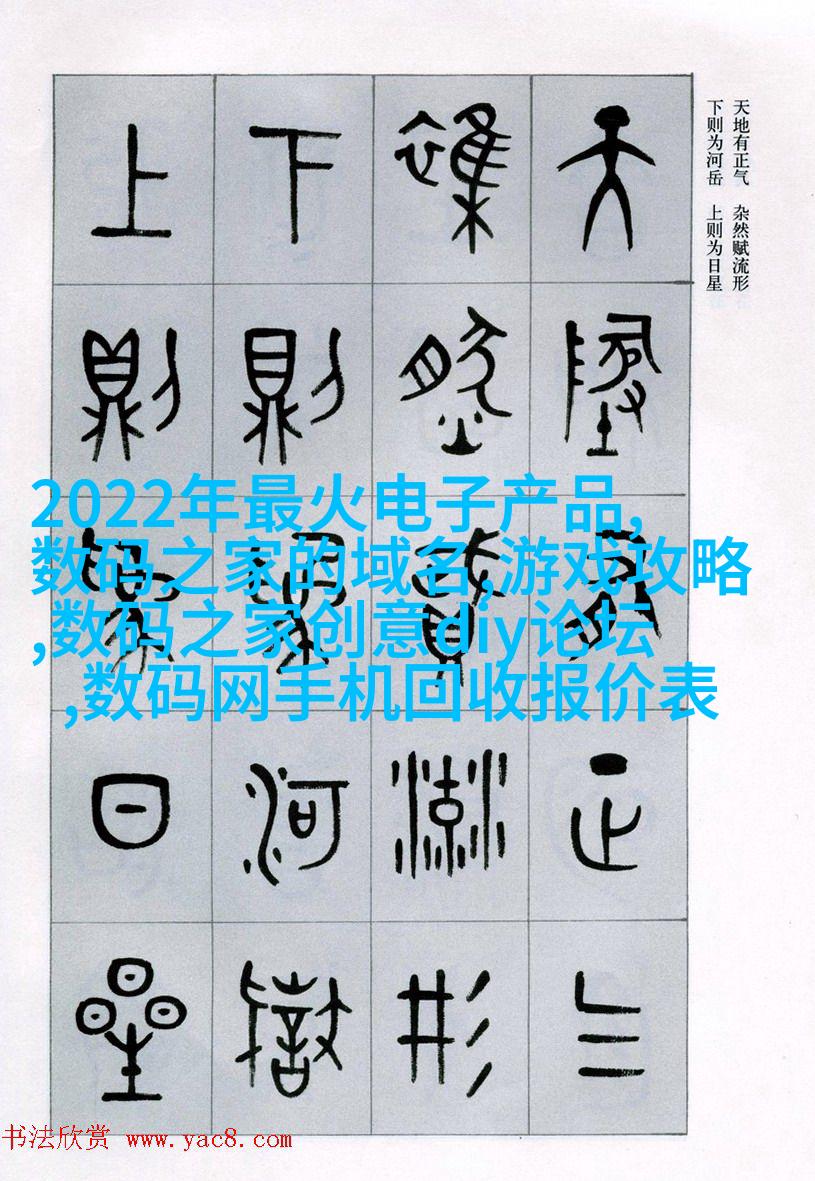 天地有正气 杂然赋流形
下则为河岳 上则为日星
天地有正气
雜然賦流形
下則為河嶽
上則為日星
2022年最火电子产品,
数码之家的域名,游戏攻略
,数码之家创意diy论坛
,数码网手机回收报价表
书法欣赏 www.yac8.com